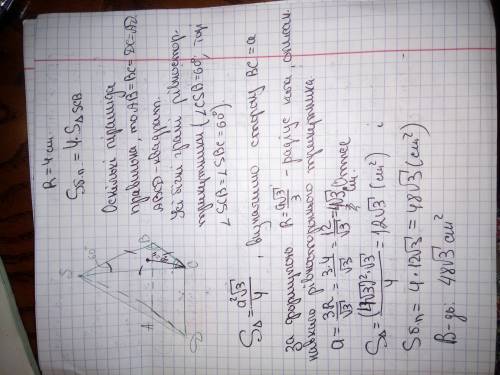 R = 4 см
Sб.п = 4·S△SCB
Оскільки піраміда
правильна, то AB=BC=DC=AD
ABCD-квадрат
Усі бічні грані рівностор.
трикутники (∠CSB=60°, тоді
∠SCB=∠SBC=60°)
S
60°
B
A
C
D
S△ = a²√3/4, визначимо сторону BC=a
За формулою R = a√3/3 - радіус кола, описан.
навколо рівностороннього трикутника
a = 3R/√3 = 3·4/√3 = 12/√3 = 4√3 см.
S△ = (4√3)²·√3/4 = 12√3 (см²)
Sб.п = 4·12√3 = 48√3 (см²)
В-дь: 48√3 см²